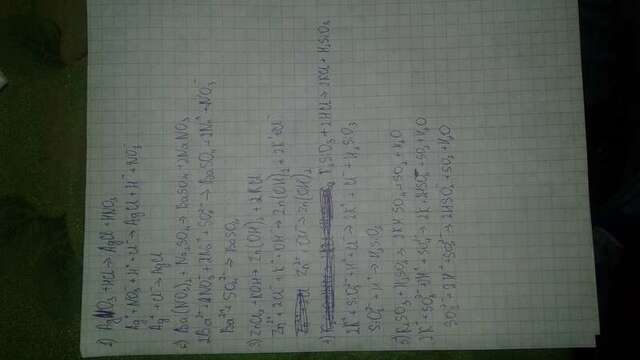 1) AgNO₃ + HCl → AgCl + HNO₃
Ag⁺ + NO₃⁻ + H⁺ + Cl⁻ → AgCl + H⁻ + NO₃⁻
Ag⁺ + Cl⁻ → AgCl
2) Ba(NO₃)₂ + Na₂SO₄ → BaSO₄ + 2NaNO₃
2Ba²⁺ + 2NO₃⁻ + 2Na⁺ + SO₄²⁻ → BaSO₄ + 2Na⁺ + NO₃⁻
Ba²⁺ + SO₄²⁻ → BaSO₄
3) ZnCl₂ + KOH → Zn(OH)₂ + 2KCl
Zn²⁺ + 2Cl⁻ + K⁺ + OH⁻ → Zn(OH)₂ + 2K⁺ + Cl⁻
Zn²⁺ + OH⁻ → Zn(OH)₂
4) K₂SiO₃ + 2HCl → 2KCl + H₂SiO₃
2K⁺ + SiO₃²⁻ + H⁺ + Cl⁻ → 2K⁺ + Cl⁻ + H₂SiO₃
SiO₃²⁻ + H⁺ → H₂SiO₃
5) K₂SO₃ + H₂SO₄ → 2KHSO₄ + SO₂ + H₂O
2K⁺ + SO₃²⁻ + 2H⁺ + SO₄²⁻ → 2K + 2HSO₄⁻ + SO₂ + H₂O
SO₃²⁻ + 2H⁺ + SO₄²⁻ → 2HSO₄⁻ + SO₂ + H₂O